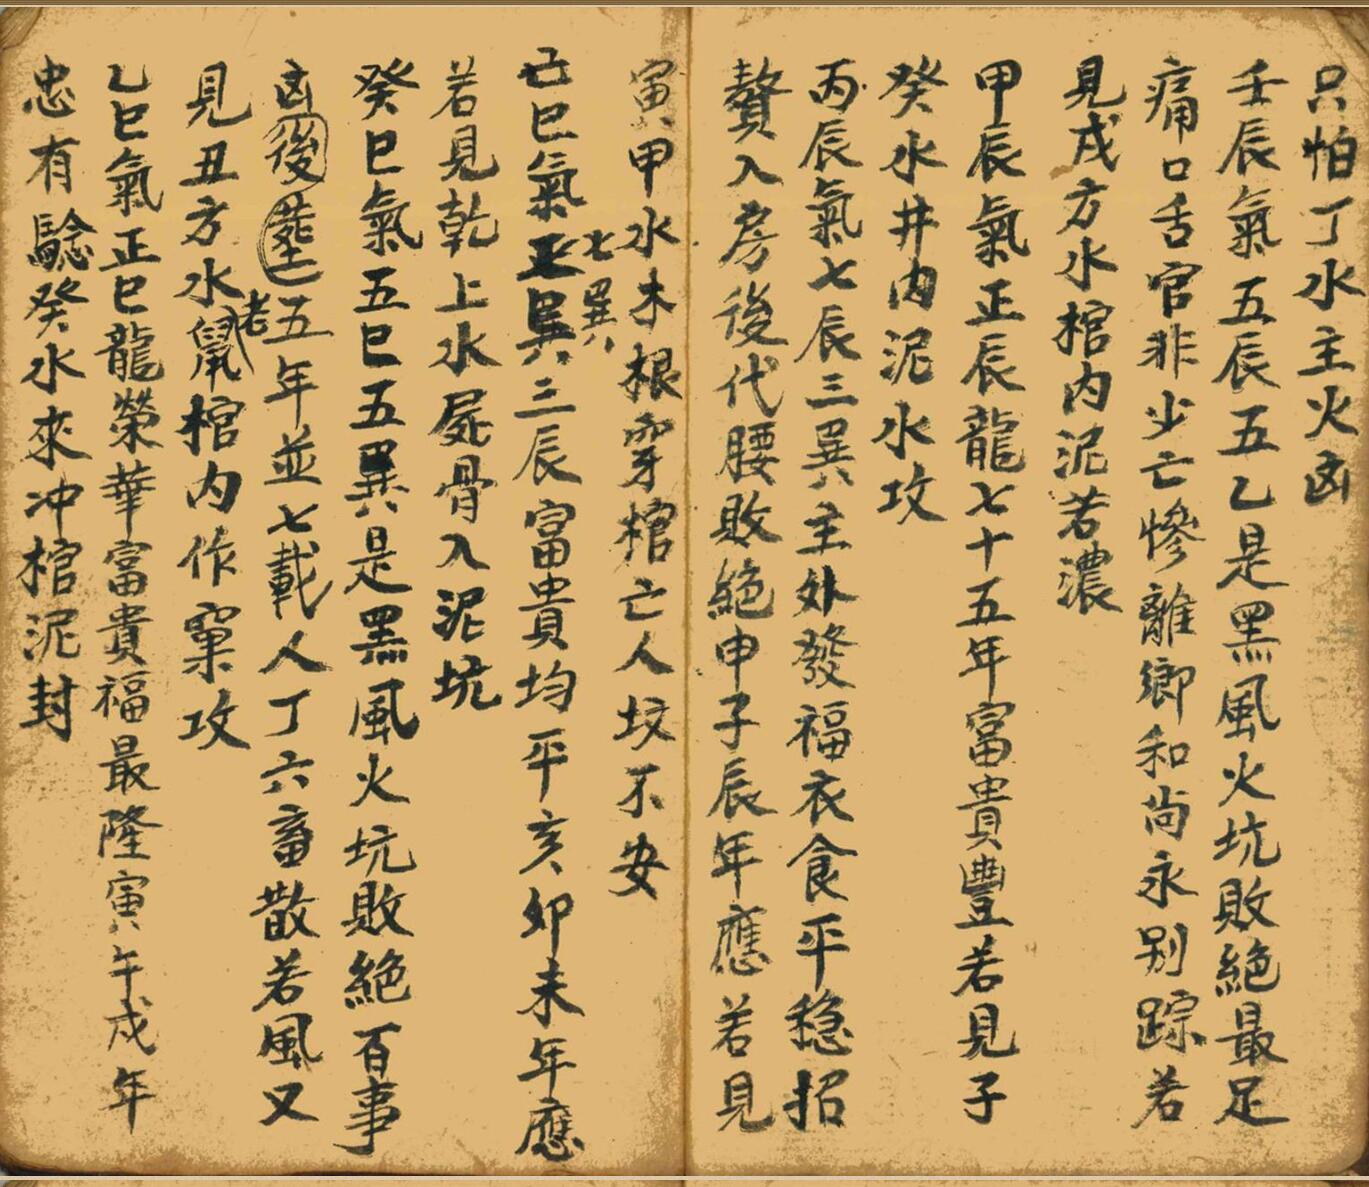 只怕丁水主火凶
壬辰氣五辰五乙是黑風火坑敗絕最足
痛口舌官非少亡慘離鄉和尚永别踪若
見戌方水棺内泥若濃
甲辰氣正辰龍七十五年富貴豐若見子
癸水井内泥水攻
丙辰氣七辰三巽主外發福衣食平穏招
贅入房後代腰敗絕申子辰年應若見
寅甲水木根穿棺亡人坟不安
七巽
巳氣三辰富貴均平亥卯未年應
若見乾上水屍骨入泥坑
癸巳氣五巳五巽是黑風火坑敗絕百事
凶後五年並七載人丁六畜散若風又
見丑方水老鼠棺内作窠攻
乙巳氣正巳龍榮華富貴福最隆寅午戌年
忠有騐癸水來冲棺泥封